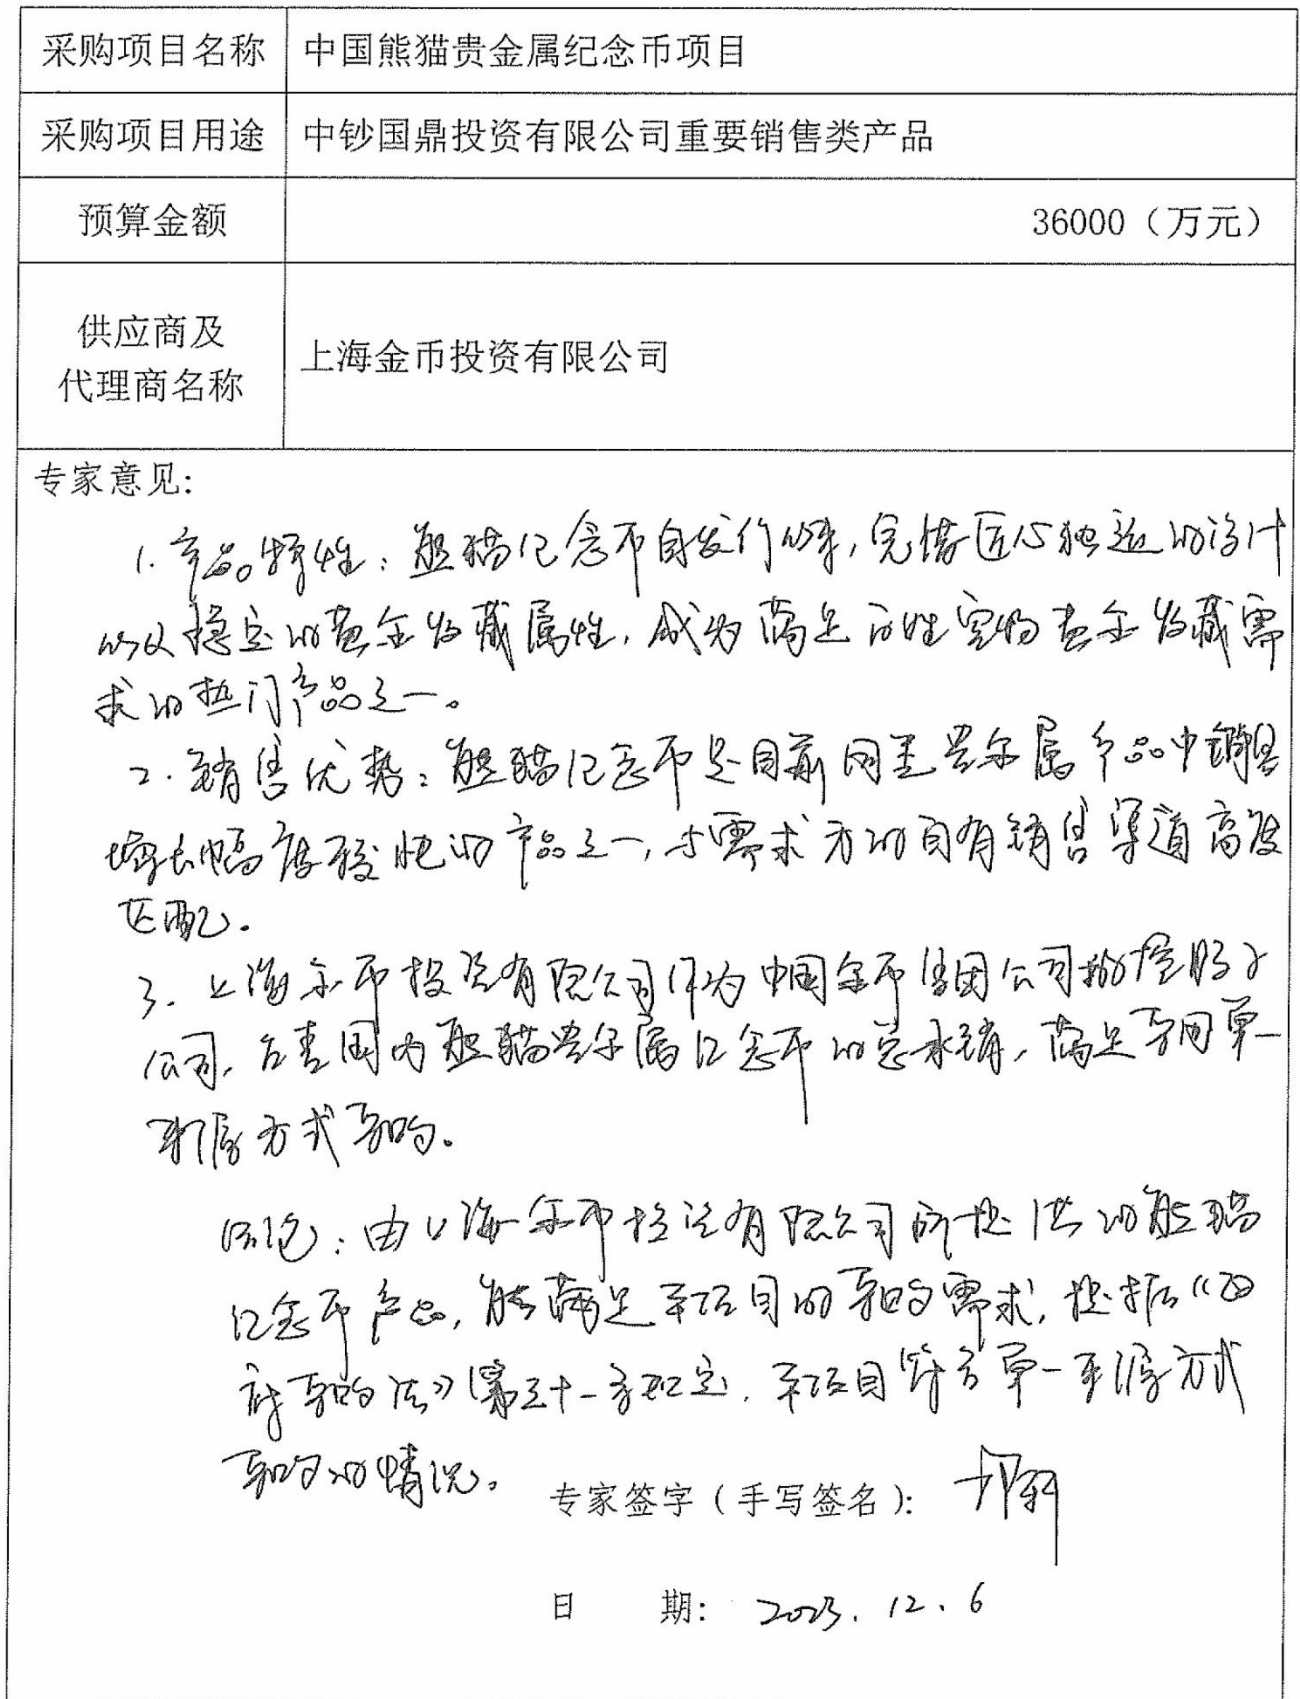 采购项目名称 中国熊猫贵金属纪念币项目
采购项目用途 中钞国鼎投资有限公司重要销售类产品
预算金额 36000（万元）
供应商及
代理商名称
上海金币投资有限公司
专家意见：
1. 产品特性：熊猫纪念币自发行以来，凭借匠心独运的设计
以及稳定的黄金收藏属性，成为满足百姓实物黄金收藏需
求的热门产品之一。
2. 销售优势：熊猫纪念币是目前网点贵金属产品中销售
增长幅度较快的产品之一，与需求方的自有销售渠道高度
匹配。
3. 上海金币投资有限公司作为中国金币集团公司的控股子
公司，负责国内熊猫贵金属纪念币的总承销，满足采用单一
来源方式采购。
结论：由上海金币投资有限公司所提供的熊猫
纪念币产品，能满足本项目的采购需求，根据《政
府采购法》第三十一条规定，本项目符合单一来源方式
采购的情况。
专家签字（手写签名）：
日 期： 2023. 12. 6